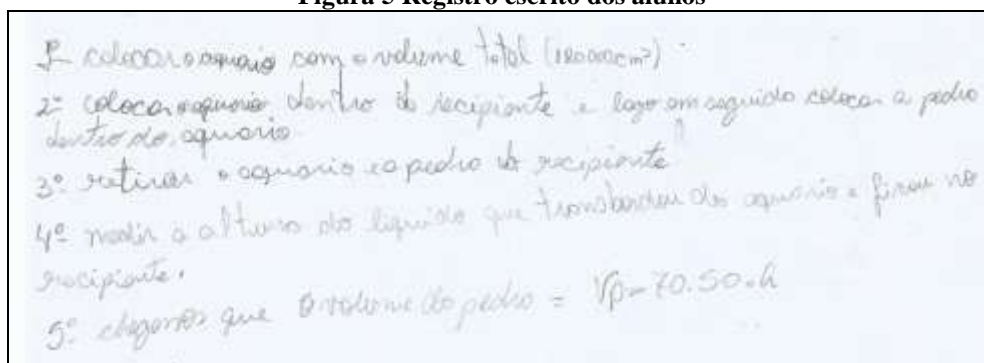 Figura 5 Registro escrito dos alunos
1º colocar o aquario com o volume total (180000cm³)
2º colocar o aquario dentro do recipiente e logo em seguida colocar a pedra
dentro do aquario
3º retirar o aquario e a pedra do recipiente
4º medir a altura do liquido que transbordou do aquário e ficou no
recipiente.
5º chegamos que o volume da pedra = Vp = 70.50.h